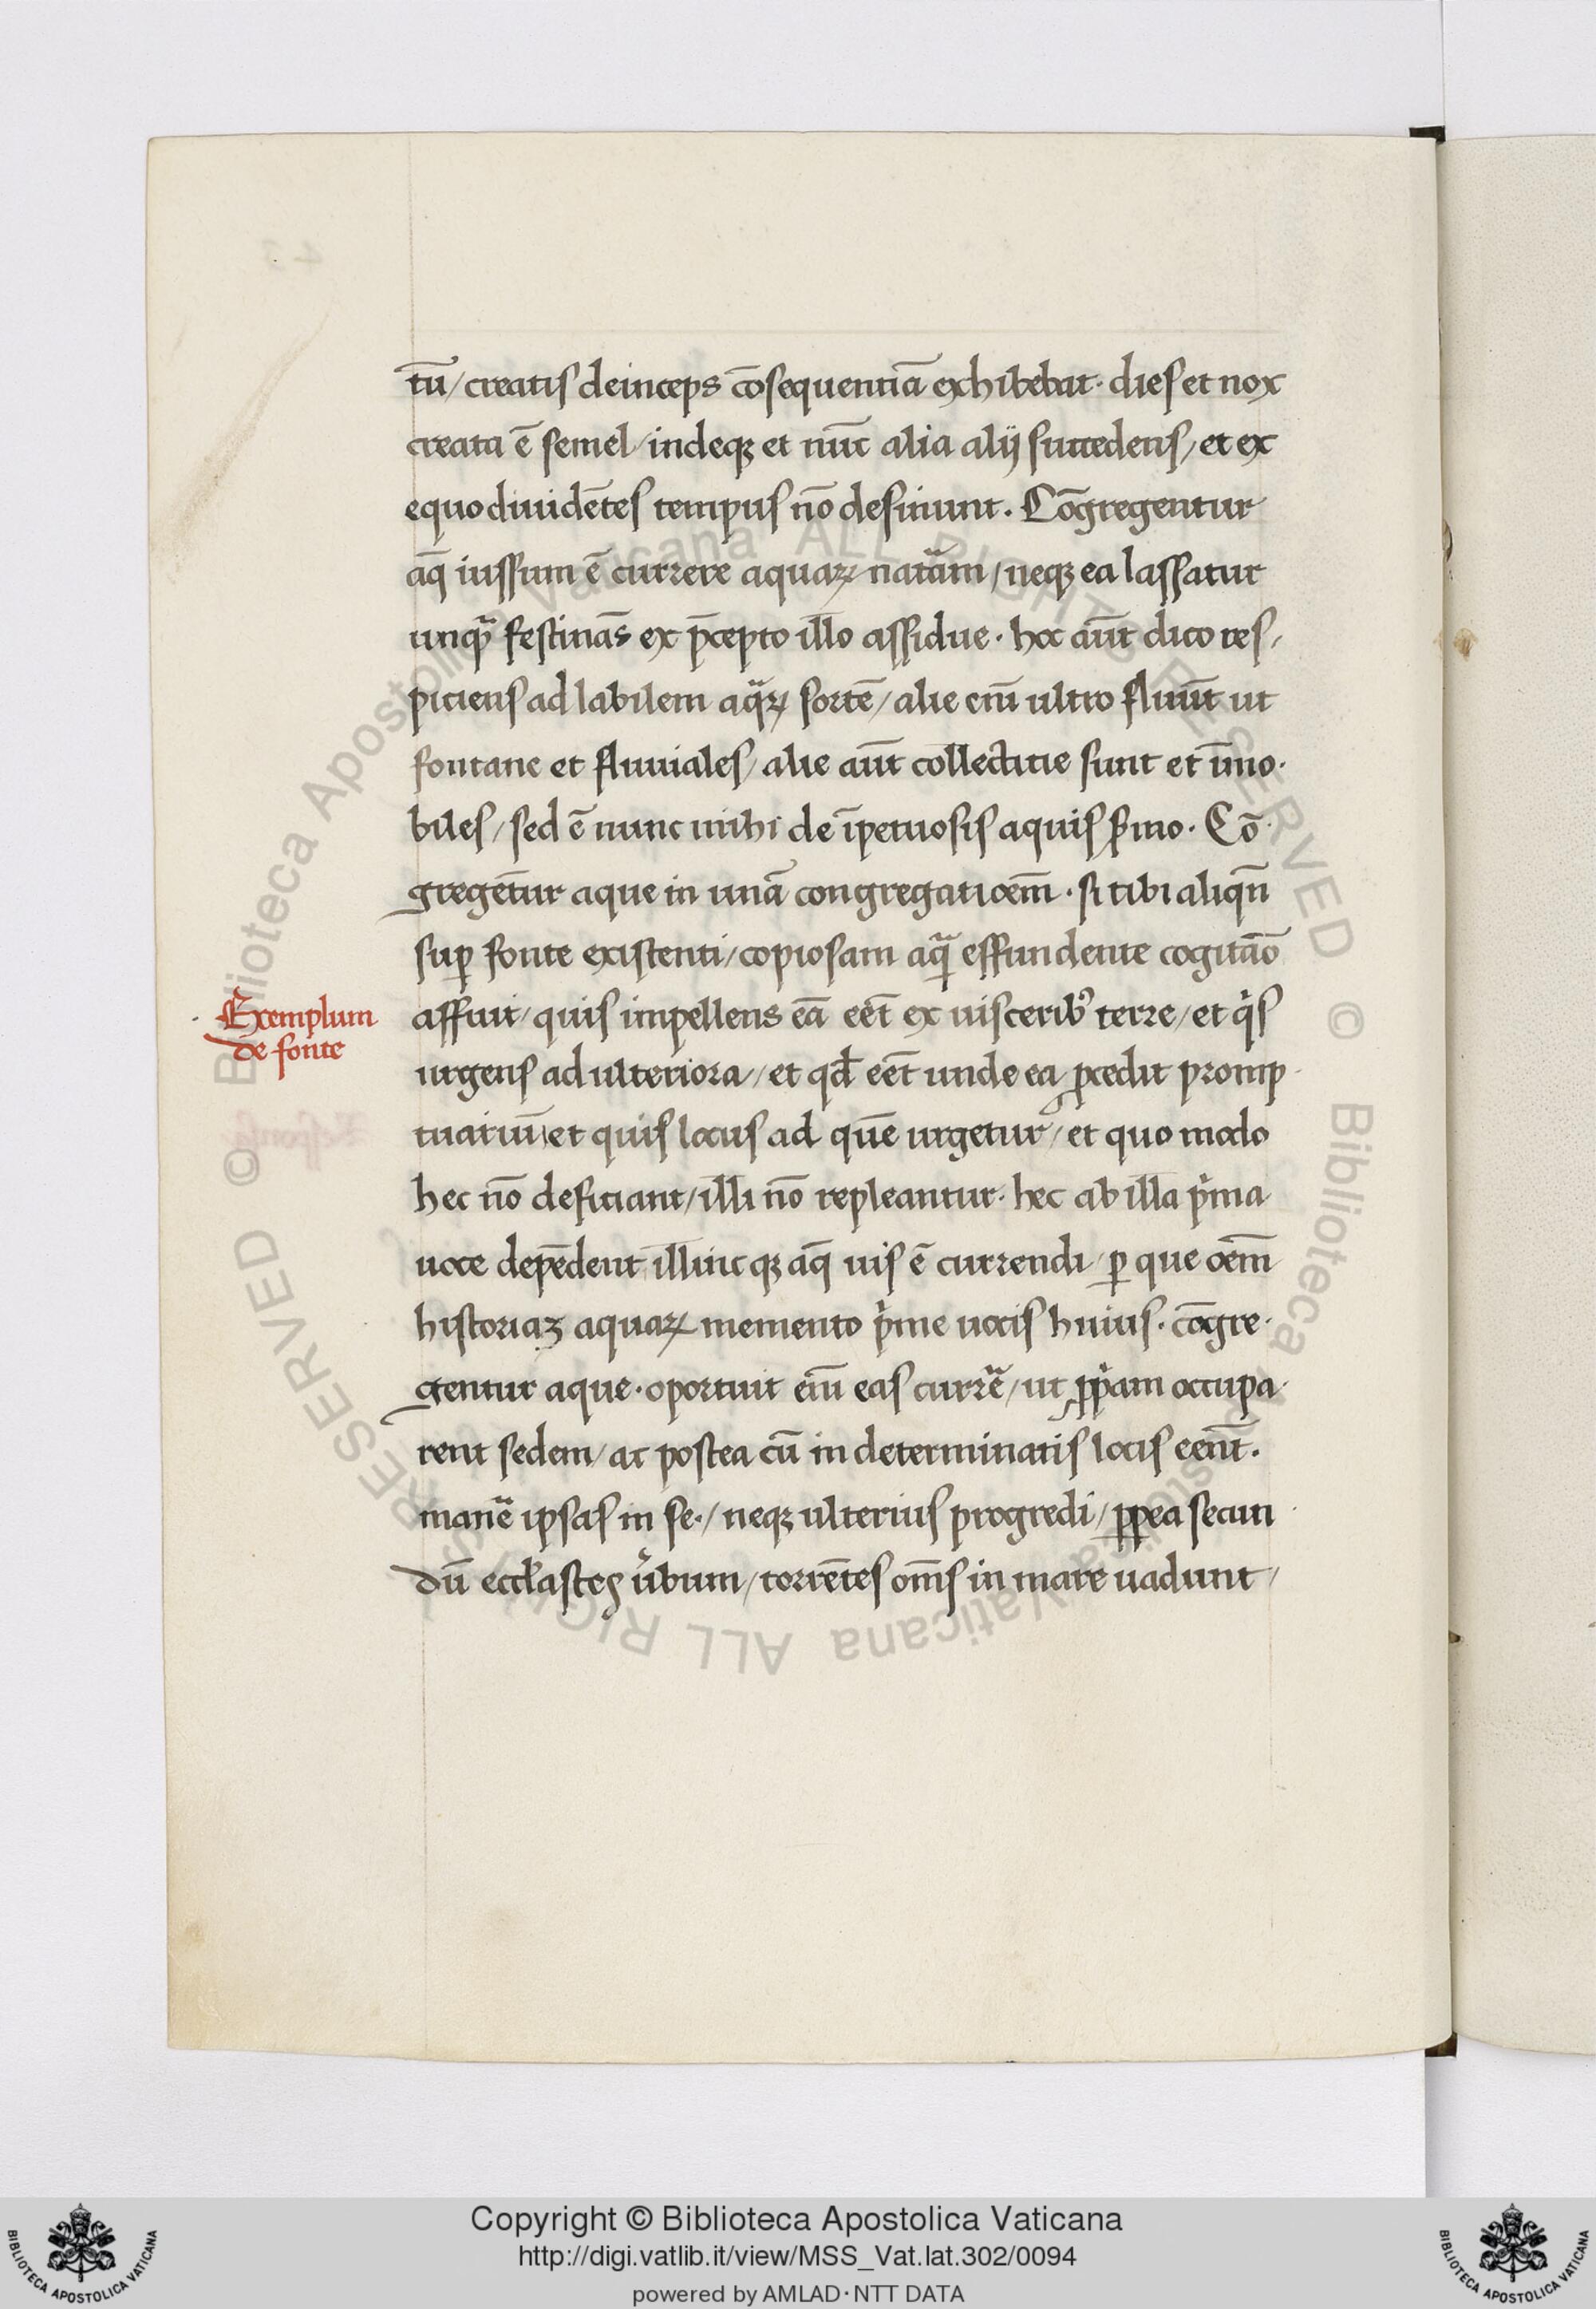 tū/ creatis deinceps cōsequentiā exhibebat· dies et nox
creata ē semel/ indeqꝫ et nūc alia alij succedens/ et ex
equo diuidētes tempus nō desinunt. Cōgregentur
aq̄ iussum ē currere aquaꝝ natām/ neqꝫ ea lassatur
unqᷓ festinās ex p̄cepto illo assidue· hoc aūt dico res/
piciens ad labilem aqᷓꝝ sortē/ alie eni̅ ultro fluūt ut
fontane et fluuiales/ alie aūt collectitie sunt et īmo·
biles/ sed ē nunc mihi de īpetuosis aquis ẜmo· Cō·
gregētur aque in unā congregatioēm· si tibi aliqn̄
suꝑ fonte existenti/ copiosam aqᷓ effundente cogitāo
affuit/ quis impellens eā eēt ex uisceribꝰ terre/ et qͥs
Exemplum
de fonte
urgens ad ulteriora/ et qd̄ eēt unde ea ꝓcedit promp
tuariū/ et quis locus ad quē urgetur/ et quo modo
hec nō deficiant/ illi nō repleantur· hec ab illa pͥma
uoce depēdent illincqꝫ aq̄ uis ē currendi/ ꝑ que oēm
historiaꝫ aquaꝝ memento pͥme uocis huius· cōgre·
gentur aque· oportuit eni̅ eas currē/ ut ꝓpͥam occupa·
rent sedem/ ac postea cū in determinatis locis eēnt.
manē ipsas in se·/ neqꝫ ulterius progredi/ ꝓꝑea secun
dū eccl̄astes u̓bum/ torrētes om̄s in mare uadunt/
Copyright © Biblioteca Apostolica Vaticana
http://digi.vatlib.it/view/MSS_Vat.lat.302/0094
powered by AMLAD·NTT DATA